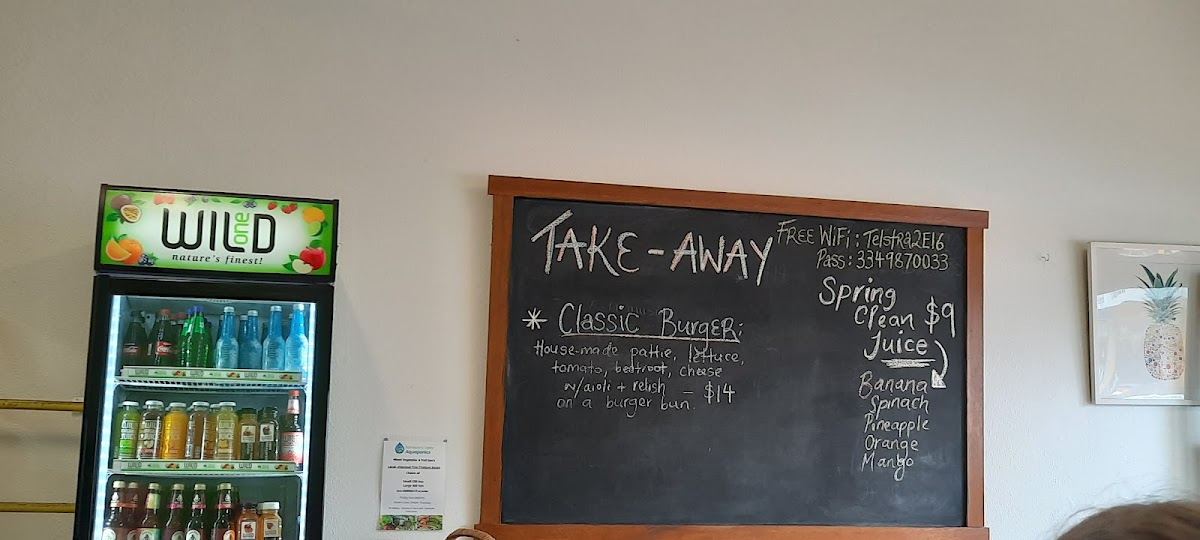 WILD
one
nature's finest!
TAKE-AWAY
* Classic Burger:
House-made pattie, lettuce,
tomato, beetroot, cheese
w/aioli + relish
on a burger bun. = $14
FREE WiFi: Telstra2E16
Pass: 3349870033
Spring
Clean $9
Juice
Banana
Spinach
Pineapple
Orange
Mango
Aquaponics